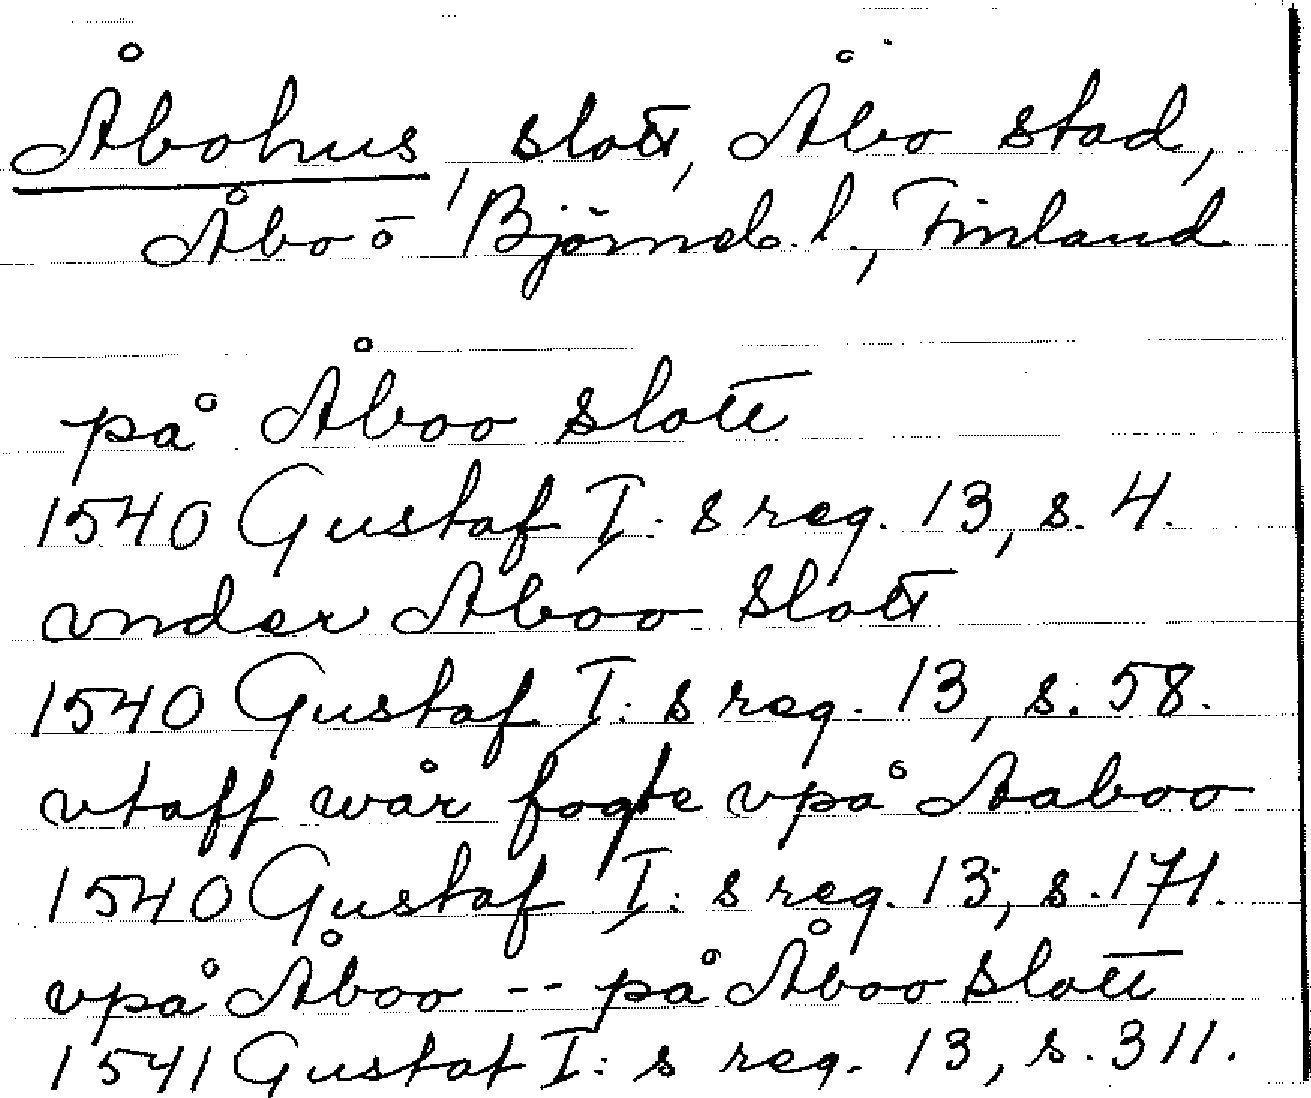 Åbohus, slott, Åbo stad,
Åbo o Björneb. l., Finland
på Åboo slott
1540 Gustaf I: s reg. 13, s. 4.
vnder Aboo slott
1540 Gustaf I: s reg. 13, s. 58.
vtaff wår fogte vpå Aaboo
1540 Gustaf I: s reg. 13, s. 171.
vpå Åboo -- på Åboo slott
1541 Gustaf I: s reg. 13, s. 311.